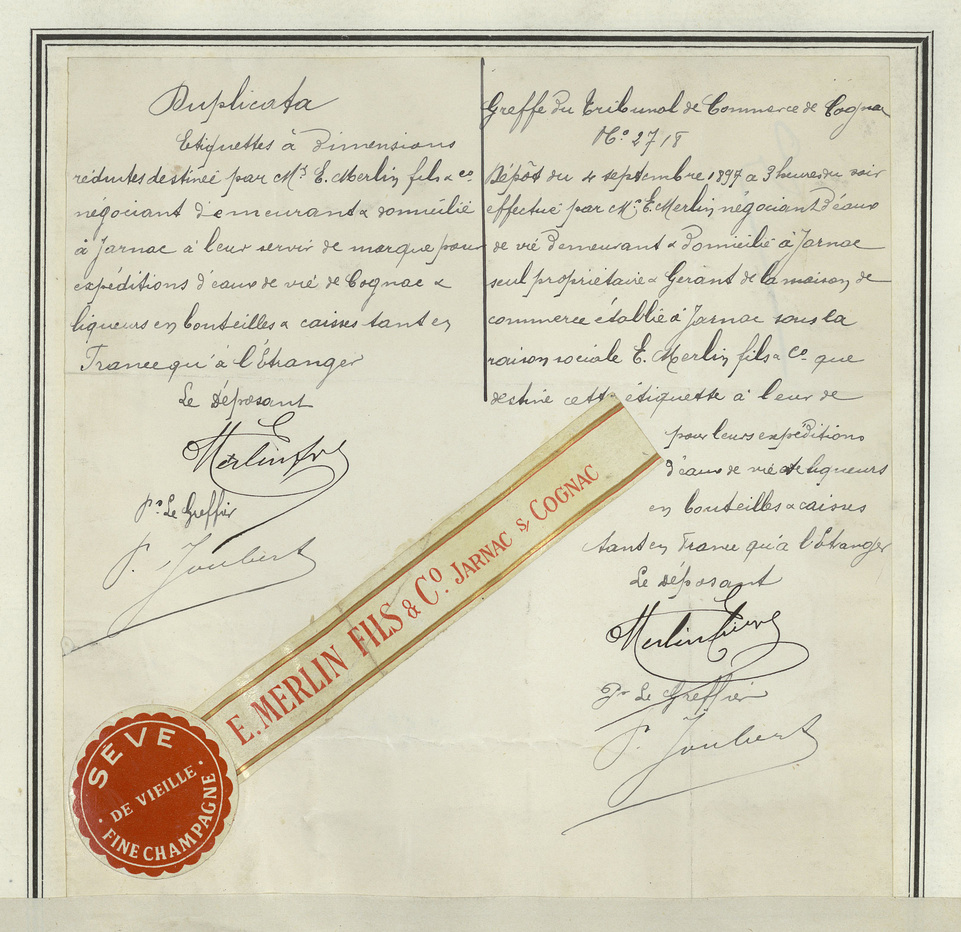 Duplicata
Etiquettes à Dimensions
réduites destinée par Mrs E. Merlin fils & Co
négociant demeurant & domicilié
à Jarnac à leur servir de marque pour
expéditions d'eaux de vie de Cognac &
liqueurs en bouteilles & caisses tant en
France qu'à l'Etranger
Le Déposant
Pr Le Greffier
P. Joubert
Greffe du Tribunal de Commerce de Cognac
No 2718
Dépôt du 4 septembre 1897 à 3 heures du soir
effectué par Mr E. Merlin négociant D'eaux
de vie Demeurant & Domicilié à Jarnac
seul propriétaire & Gérant de la maison de
commerce établie à Jarnac sous la
raison sociale E. Merlin fils & Co que
destine cette étiquette à leur de
pour leurs expéditions
d'eaux de vie et liqueurs
en bouteilles & caisses
tant en France qu'à l'Etranger
Le déposant
Pr Le Greffier
P. Joubert
E. MERLIN FILS & Co. JARNAC S/ COGNAC
SÈVE
DE VIEILLE
FINE CHAMPAGNE